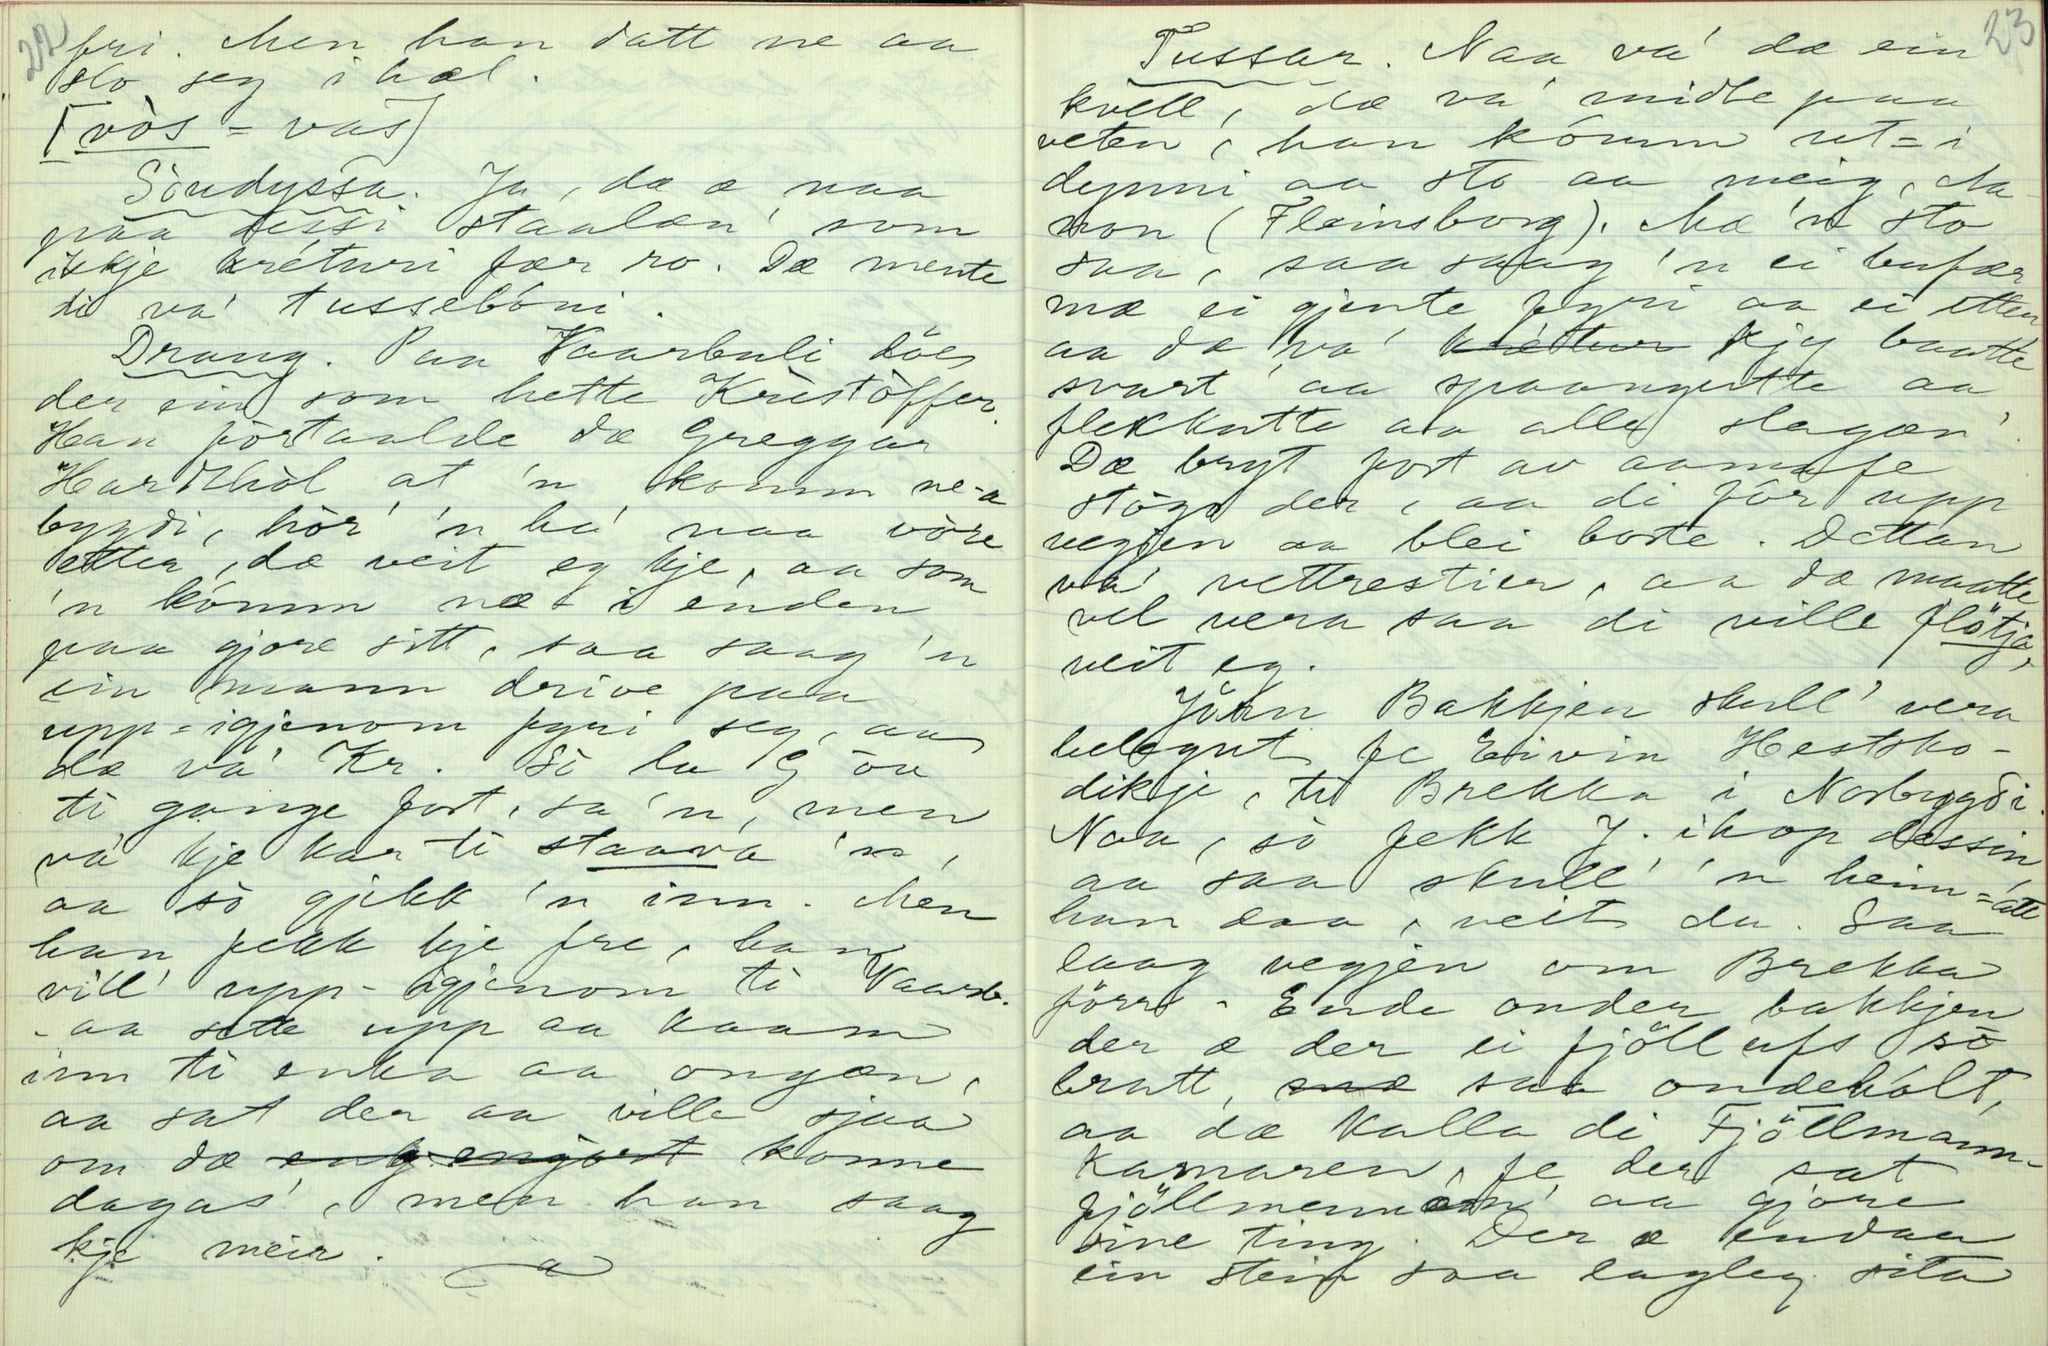 22
fri. Men han datt ne aa
slo seg ihæl.
[vòs = vas]
Söndyssa. Ja, dæ æ naa
paa dessi staalæn' som
ikkje kréturi fær ro. Dæ mente
di va' tussebóni.
Draug. Paa Vaarbuli döe
der ein som hette Kristòffer.
Hanförtaalde dæ Greggar
Hardthòl at 'n komm ne-a
bygdi, hòr' 'n ha' naa vòre
etter, dæ veit eg kje, aa som
'n kómm næ i enden
paa gjore sitt, saa saag 'n
ein mann drive paa
upp-igjenom fyri seg, aa
dæ va' Kr. Sò la G öu
ti gange fort, sa 'n, men
va' kje kar ti staava 'n,
aa sò gjekk 'n inn. Men
han fekk kje fre, han
vill' upp-igjenom ti Vaarb.
- aa sette upp aa kaam
inn ti enka aa ongæn,
aa sat der aa ville sjaa
om dæ konne
dagas', men han saag
kje meir.
23
Tussar. Naa va' dæ ein
kvell, dæ va' midle paa
veten, han kómm ut-i
dynni aa sto aa meig, Ma-
non (Fleinsborg). Mæ 'n sto
saa, saa saag 'n ei bufær
mæ ei gjente fyri aa ei etter
aa dæ va' krétur kjy baatte
svart aa spaangutte aa
flekkutte aa alle slagæn'.
Dæ bryt fort av aamafe
stögo der, aa di fór upp
vegjen aa blei borte. Dettan
va' vettrestier, aa dæ maatte
vel vera saa di ville flötja,
veit eg.
Jönn Bakkjen skull' vera
belagut fe Eivin Hestsko-
dikje, ti Brekka i Norbygdi.
Naa, sò fekk J. ihop dessin
aa saa skull' 'n heim-átt
han daa, veit du. Saa
laag vegjen om Brekka
förr. Ende onder bakkjen
der æ der ei fjöllufs sò
bratt, saa ondehólt,
aa dæ kalla di Fjöllmann-
kamaren, fe der sat
fjöllmennæn' aa gjore
sine ting. Der æ endaa
ein stein saa lagleg sita